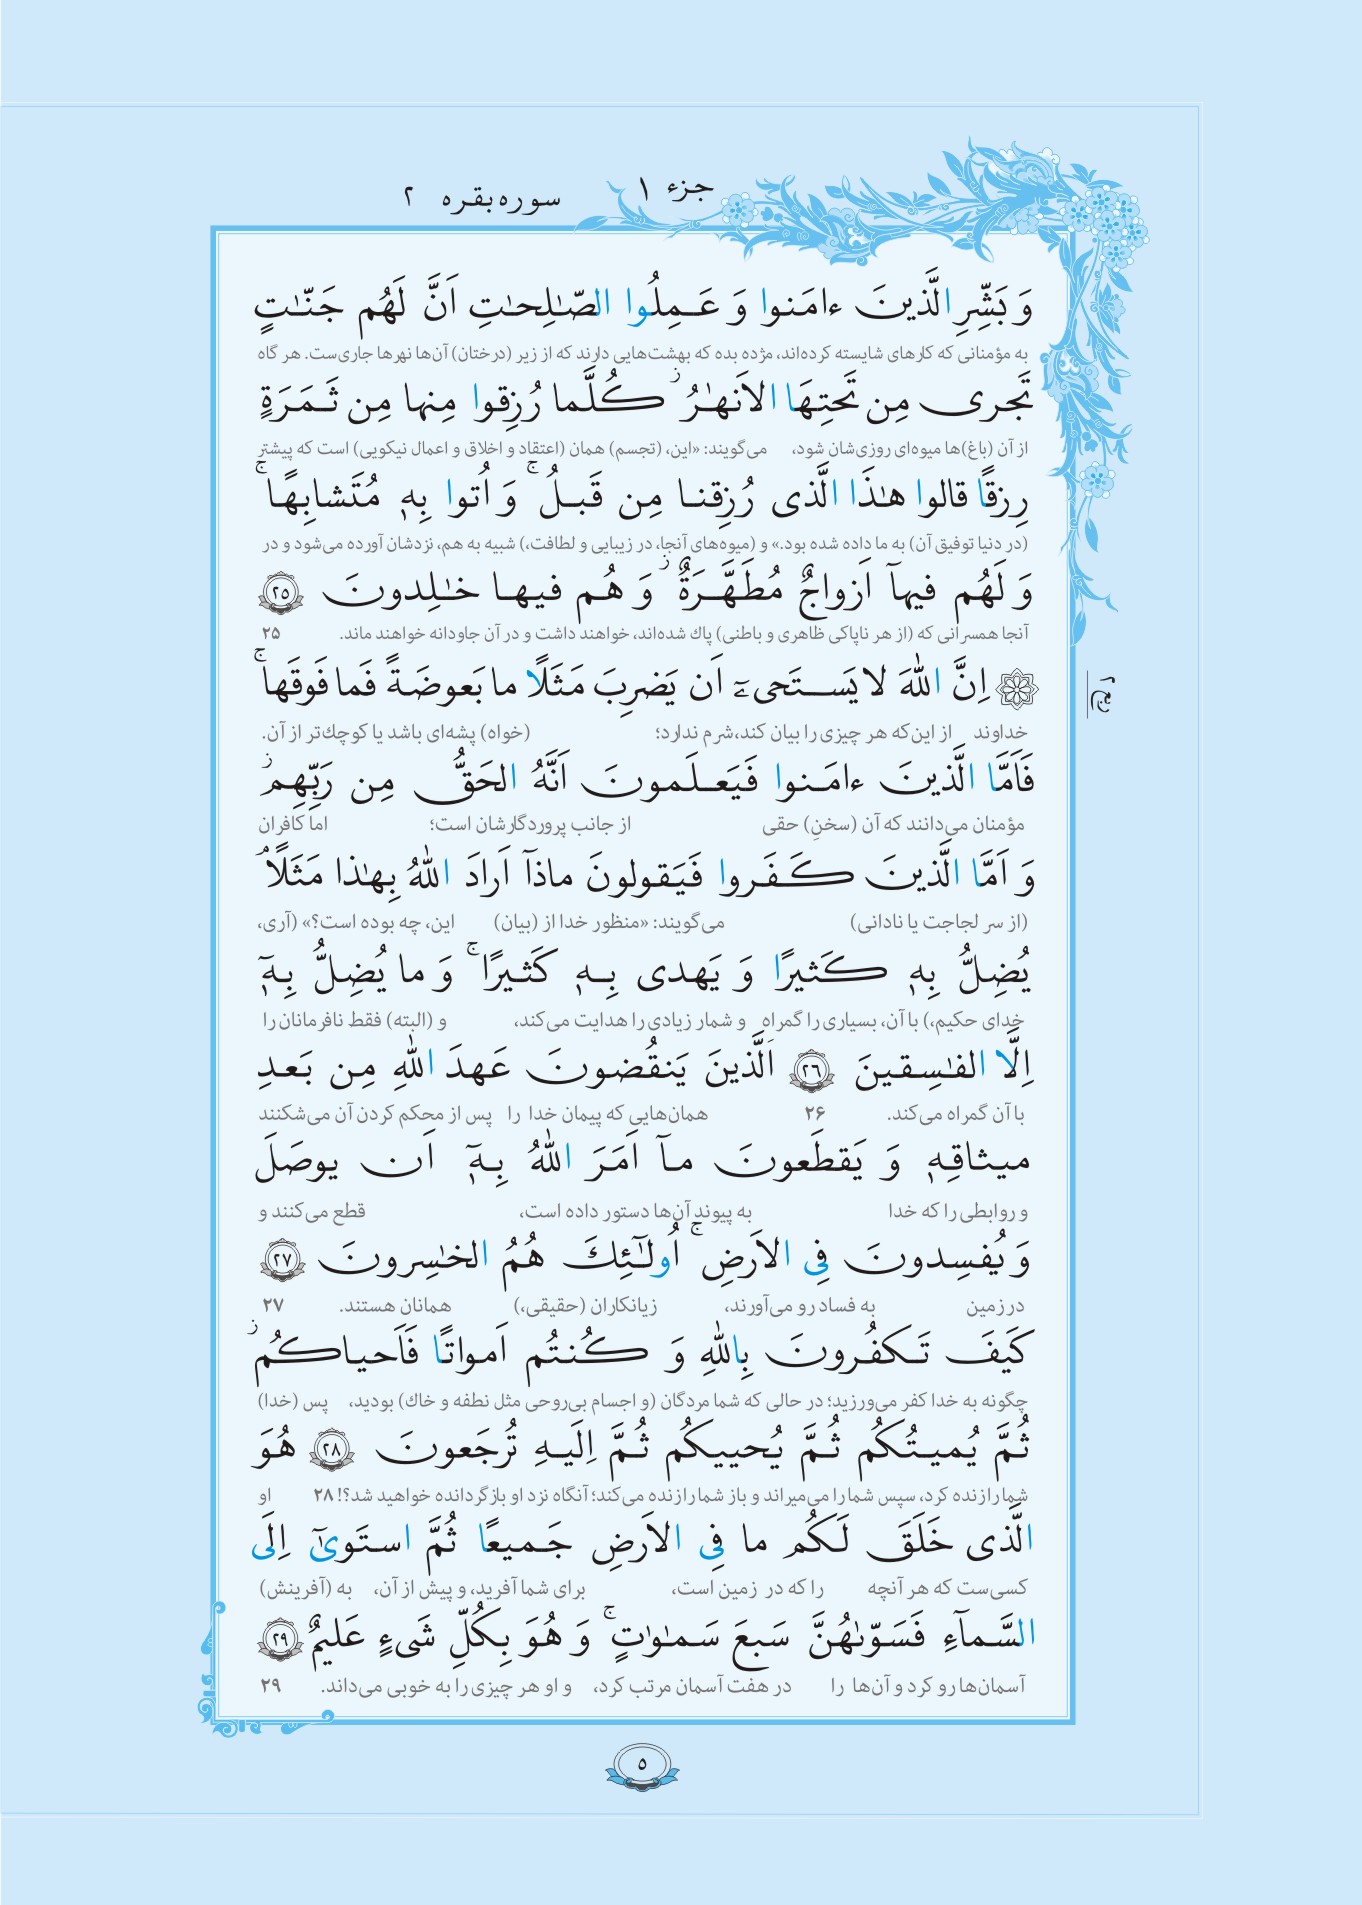 جزء ۱
سوره بقره ۲
وَ بَشِّرِ الَّذینَ ءامَنوا وَ عَـمِلُوا الصّـٰلِحـٰتِ اَنَّ لَهُم جَنّـٰتٍ
به مؤمنانی که کارهای شایسته کرده‌اند، مژده بده که بهشت‌هایی دارند که از زیر (درختان) آن‌ها نهرها جاری‌ست. هر گاه
تَجری مِن تَحتِهَا الاَنهـٰرُ ۖز کُلَّما رُزِقوا مِنها مِن ثَـمَرَةٍ
از آن (باغ)ها میوه‌ای روزی‌شان شود، می‌گویند: «این، (تجسم) همان (اعتقاد و اخلاق و اعمال نیکویی) است که پیشتر
رِزقًا قالوا هـٰذَا الَّذی رُزِقنـا مِن قَبـلُ ۚ وَ اُتوا بِهٖ مُتَشابِهًا ۚ
(در دنیا توفیق آن) به ما داده شده بود.» و (میوه‌های آنجا، در زیبایی و لطافت،) شبیه به هم، نزدشان آورده می‌شود و در
وَ لَهُم فیهآ اَزواجٌ مُطَهَّـرَةٌ ز وَ هُـم فیهـا خـٰلِدونَ ۲۵
آنجا همسرانی که (از هر ناپاکی ظاهری و باطنی) پاك شده‌اند، خواهند داشت و در آن جاودانه خواهند ماند. ۲۵
۞ اِنَّ اللهَ لا یَسـتَحییٓ اَن یَضرِبَ مَثَلًا ما بَعوضَةً فَما فَوقَها ۚ
ربع ۲
خداوند از این‌که هر چیزی را بیان کند، شرم ندارد؛ (خواه) پشه‌ای باشد یا کوچك‌تر از آن.
فَاَمَّا الَّذینَ ءامَـنوا فَیَعـلَمونَ اَنَّهُ الحَقُّ مِن رَبِّهِم ز
مؤمنان می‌دانند که آن (سخنِ) حقی از جانب پروردگارشان است؛ اما کافران
وَ اَمَّا الَّذینَ کَـفَـروا فَیَقولونَ ماذآ اَرادَ اللهُ بِهـٰذا مَثَلًا ۘ
(از سر لجاجت یا نادانی) می‌گویند: «منظور خدا از (بیان) این، چه بوده است؟» (آری،
یُضِلُّ بِهٖ کَـثیرًا وَ یَهدی بِـهٖ کَثیرًا ۚ وَ ما یُضِلُّ بِهٖٓ
خدای حکیم،) با آن، بسیاری را گمراه و شمار زیادی را هدایت می‌کند، و (البته) فقط نافرمانان را
اِلَّا الفـٰسِقینَ ۲۶ اَلَّذینَ یَنقُضونَ عَهدَ اللهِ مِن بَعدِ
با آن گمراه می‌کند. ۲۶ همان‌هایی که پیمان خدا را پس از محکم کردن آن می‌شکنند
میثاقِـهٖ وَ یَقطَعونَ مـآ اَمَرَ اللهُ بِـهٖٓ اَن یوصَلَ
و روابطی را که خدا به پیوند آن‌ها دستور داده است، قطع می‌کنند و
وَ یُفسِدونَ فِی الاَرضِ ۚ اُولـٰٓئِكَ هُمُ الخـٰسِرونَ ۲۷
در زمین به فساد رو می‌آورند، زیانکاران (حقیقی،) همانان هستند. ۲۷
کَیفَ تَـکفُرونَ بِاللهِ وَ کُـنتُم اَمواتًا فَاَحیاکُـم ز
چگونه به خدا کفر می‌ورزید؛ در حالی که شما مردگان (و اجسام بی‌روحی مثل نطفه و خاك) بودید، پس (خدا)
ثُمَّ یُمیـتُکُم ثُـمَّ یُحییکُم ثُـمَّ اِلَیـهِ تُرجَعونَ ۲۸ هُوَ
شما را زنده کرد، سپس شما را می‌میراند و باز شما را زنده می‌کند؛ آنگاه نزد او بازگردانده خواهید شد؟! ۲۸ او
الَّذی خَلَقَ لَـکُم ما فِی الاَرضِ جَـمیعًا ثُمَّ استَویٰٓ اِلَی
کسی‌ست که هر آنچه را که در زمین است، برای شما آفرید، و پیش از آن، به (آفرینش)
السَّـمآءِ فَسَوّىٰهُنَّ سَبعَ سَـمـٰوٰتٍ ۚ وَ هُوَ بِکُلِّ شَیءٍ عَلیمٌ ۲۹
آسمان‌ها رو کرد و آن‌ها را در هفت آسمان مرتب کرد، و او هر چیزی را به خوبی می‌داند. ۲۹
۵